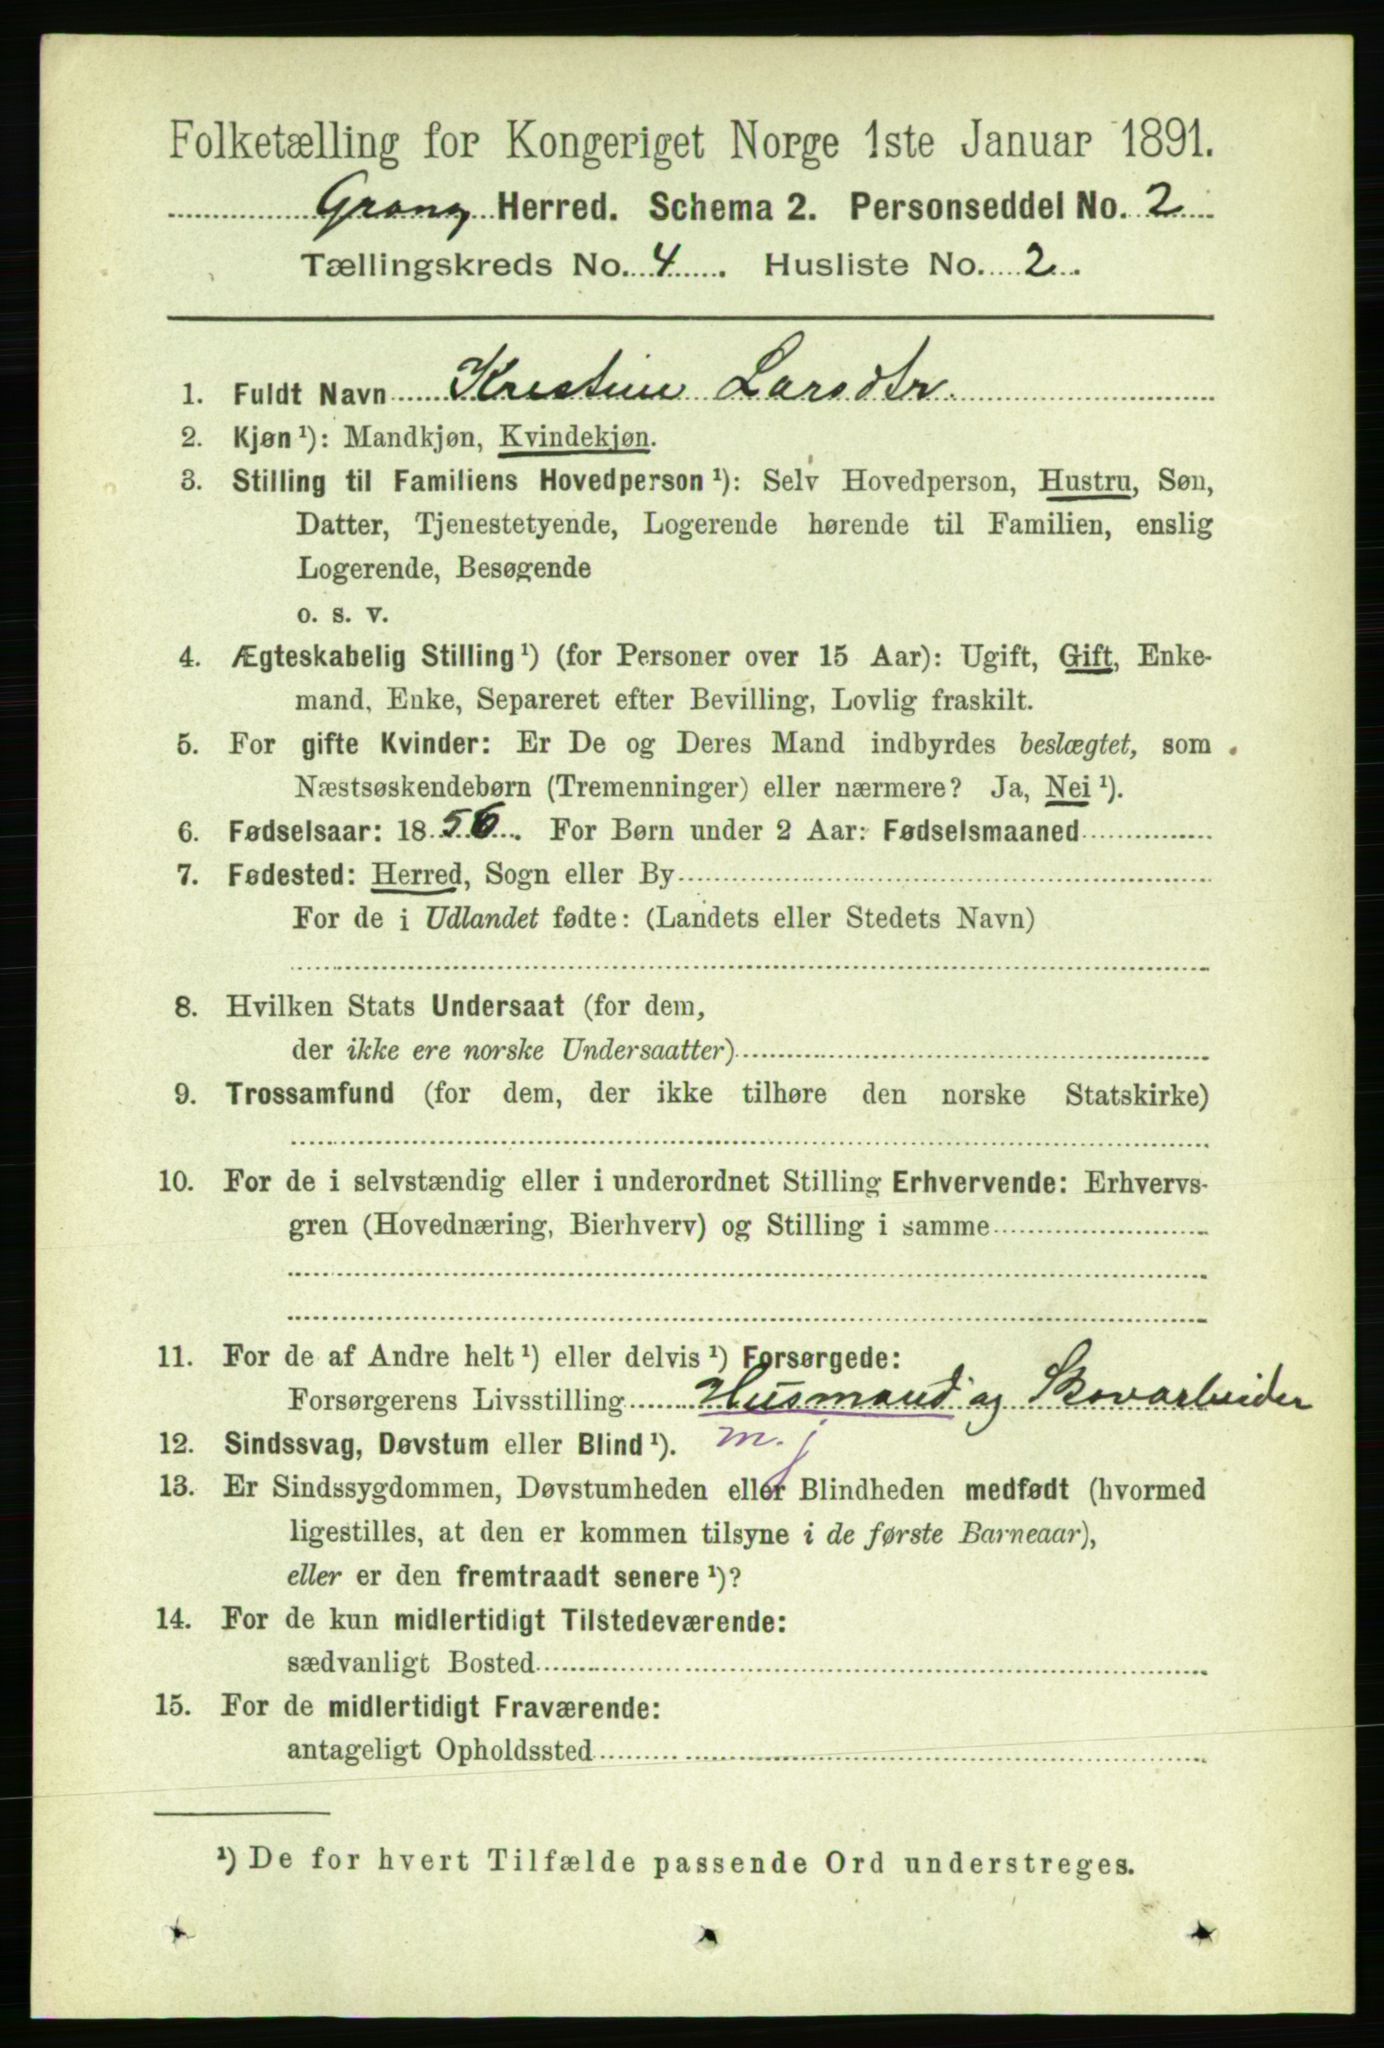 Folketælling for Kongeriget Norge 1ste Januar 1891.
Grong Herred. Schema 2. Personseddel No. 2
Tællingskreds No. 4. Husliste No. 2.
1. Fuldt Navn Kristine Larsdtr.
2. Kjøn ¹): Mandkjøn, Kvindekjøn.
3. Stilling til Familiens Hovedperson ¹): Selv Hovedperson, Hustru, Søn,
Datter, Tjenestetyende, Logerende hørende til Familien, enslig
Logerende, Besøgende
o. s. v.
4. Ægteskabelig Stilling ¹) (for Personer over 15 Aar): Ugift, Gift, Enke-
mand, Enke, Separeret efter Bevilling, Lovlig fraskilt.
5. For gifte Kvinder: Er De og Deres Mand indbyrdes beslægtet, som
Næstsøskendebørn (Tremenninger) eller nærmere? Ja, Nei ¹).
6. Fødselsaar: 1856. For Børn under 2 Aar: Fødselsmaaned
7. Fødested: Herred, Sogn eller By
For de i Udlandet fødte: (Landets eller Stedets Navn)
8. Hvilken Stats Undersaat (for dem,
der ikke ere norske Undersaatter)
9. Trossamfund (for dem, der ikke tilhøre den norske Statskirke)
10. For de i selvstændig eller i underordnet Stilling Erhvervende: Erhvervs-
gren (Hovednæring, Bierhverv) og Stilling i samme
11. For de af Andre helt ¹) eller delvis ¹) Forsørgede:
Forsørgerens Livsstilling Husmand og Skovarbeider
12. Sindssvag, Døvstum eller Blind ¹). m. j
13. Er Sindssygdommen, Døvstumheden eller Blindheden medfødt (hvormed
ligestilles, at den er kommen tilsyne i de første Barneaar),
eller er den fremtraadt senere ¹)?
14. For de kun midlertidigt Tilstedeværende:
sædvanligt Bosted
15. For de midlertidigt Fraværende:
antageligt Opholdssted
¹) De for hvert Tilfælde passende Ord understreges.